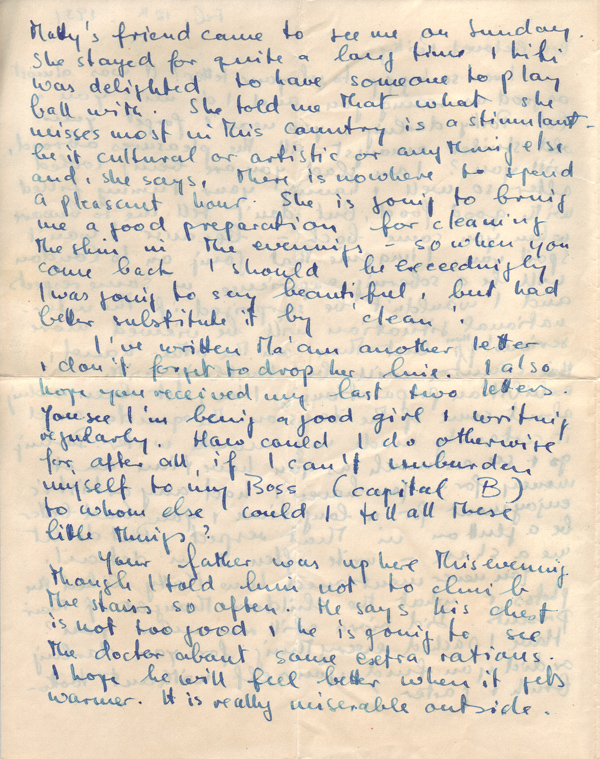 Matty's friend came to see me on Sunday.
She stayed for quite a long time & Kiki
was delighted to have someone to play
ball with. She told me that what she
misses most in this country is a stimulant -
be it cultural or artistic or anything else
and, she says, there is nowhere to spend
a pleasant hour. She is going to bring
me a good preparation for cleaning
the skin in the evenings - so when you
come back I should be exceedingly
I was going to say beautiful, but had
better substitute it by 'clean'.
I've written Ma'am another letter
& don't forget to drop her line. I also
hope you received my last two letters.
You see I'm being a good girl & writing
regularly. How could I do otherwise
for after all, if I can't unburden
myself to my Boss (capital B)
to whom else could I tell all these
little things?
Your father was up here this evening
though I told him not to climb
the stairs so often. He says his chest
is not too good & he is going to see
the doctor about some extra rations.
I hope he will feel better when it gets
warmer. It is really miserable outside.